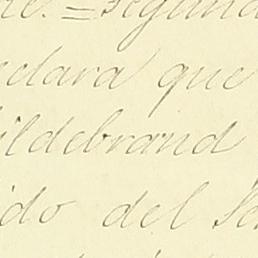 re. = Segunda
eclara que
ildebrand
ido del Se